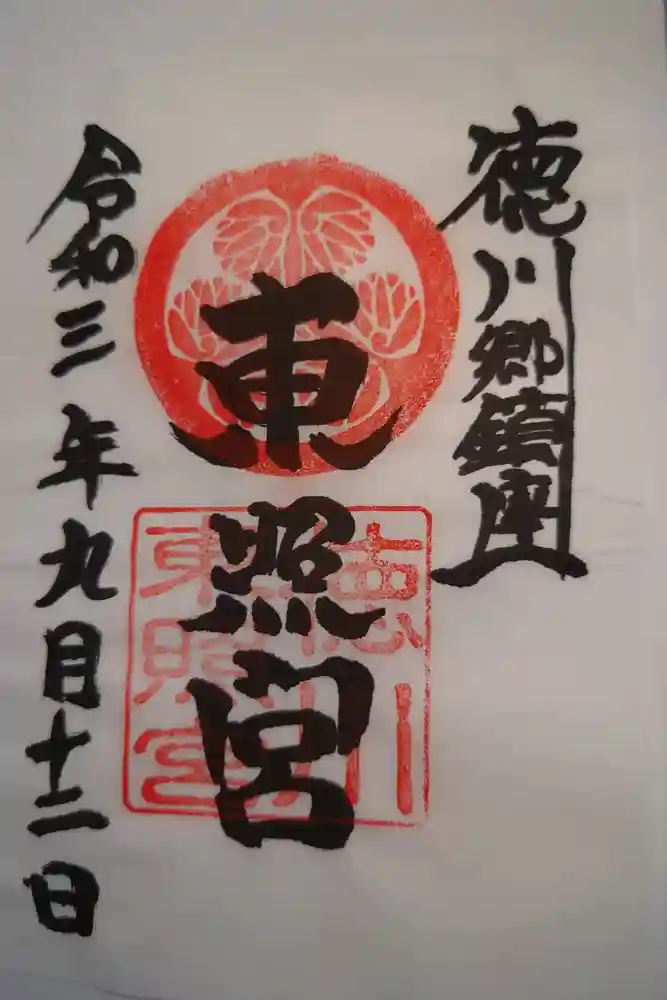 徳川郷鎮座
東照宮
徳川
東照宮
令和三年九月十二日